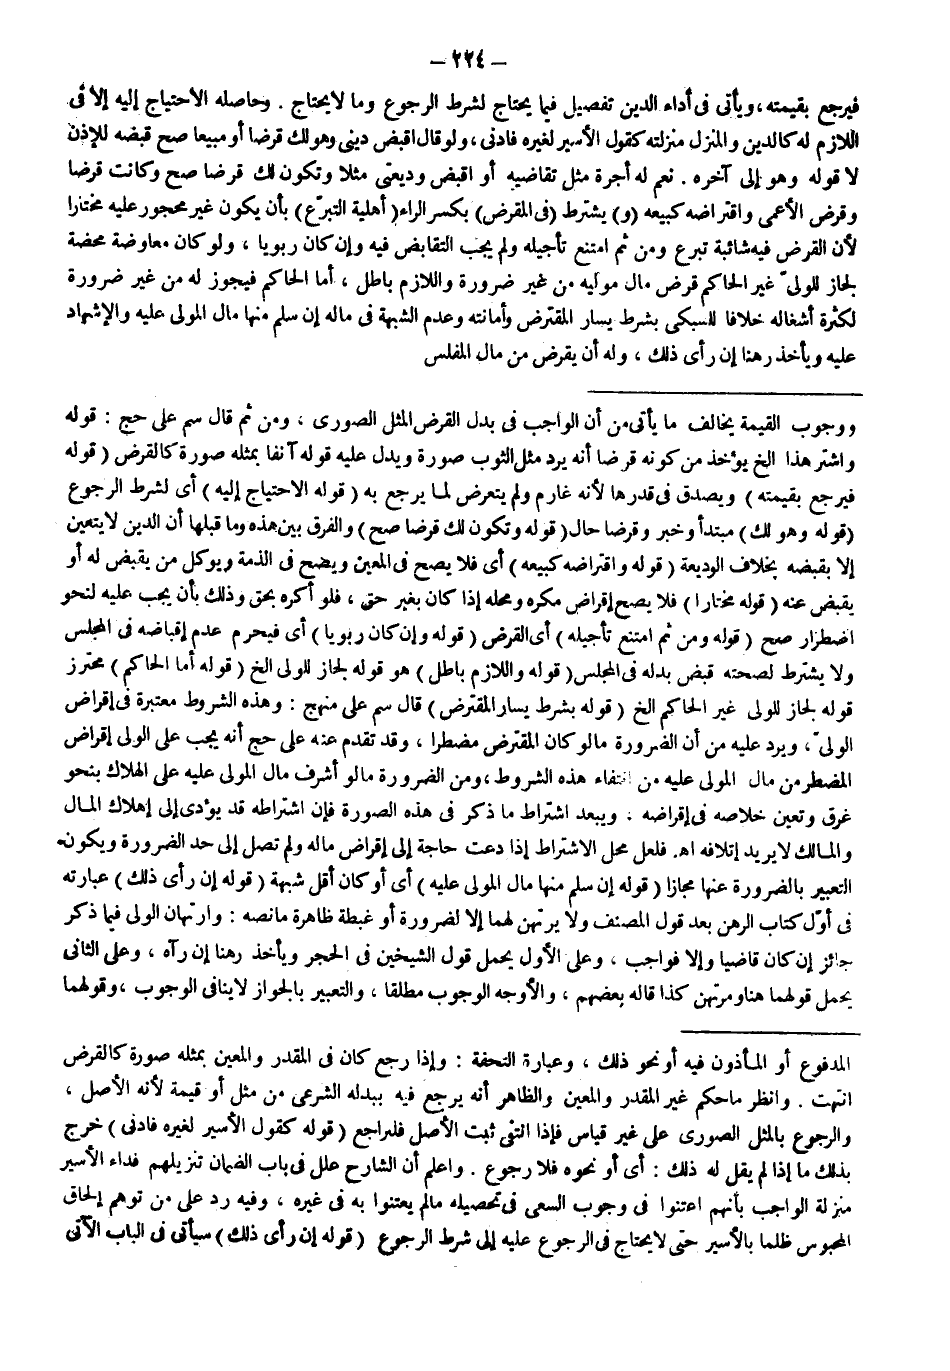 – ٢٢٤ –
فيرجع بقيمته، ويأتى فى أداء الدين تفصيل فيما يحتاج لشرط الرجوع وما لايحتاج . وحاصله الاحتياج إليه إلا فى
اللازم له كالدين والمنزل منزلته كقول الأسير لغيره فادنى ، ولو قال اقبض دينى وهو لك قرضا أو مبيعا صح قبضه للإذن
لا قوله وهو إلى آخره . نعم له أجرة مثل تقاضيه أو اقبض وديعتى مثلا وتكون لك قرضا صح وكانت قرضا
وقرض الأعمى واقتراضه كبيعه (و) يشترط (فى المقرض) بكسر الراء (أهلية التبرّع) بأن يكون غير محجور عليه مختارا
لأن القرض فيه شائبة تبرع ومن ثم امتنع تأجيله ولم يجب التقابض فيه وإن كان ربويا ، ولو كان معاوضة محضة
لجاز للولىّ غير الحاكم قرض مال موليه من غير ضرورة واللازم باطل ، أما الحاكم فيجوز له من غير ضرورة
لكثرة أشغاله خلافا للسبكى بشرط يسار المقترض وأمانته وعدم الشبهة فى ماله إن سلم منها مال المولى عليه والإشهاد
عليه ويأخذ رهنا إن رأى ذلك ، وله أن يقرض من مال المفلس
ووجوب القيمة يخالف ما يأتى من أن الواجب فى بدل القرض المثل الصورى ، ومن ثم قال سم على حج : قوله
واشتر هذا الخ يؤخذ من كونه قرضا أنه يرد مثل الثوب صورة ويدل عليه قوله آنفا بمثله صورة كالقرض ( قوله
فيرجع بقيمته ) ويصدق فى قدرها لأنه غارم ولم يتعرض لما يرجع به ( قوله الاحتياج إليه ) أى لشرط الرجوع
(قوله وهو لك) مبتدأ وخبر وقرضا حال ( قوله وتكون لك قرضا صح ) والفرق بين هذه وما قبلها أن الدين لايتعين
إلا بقبضه بخلاف الوديعة ( قوله واقتراضه كبيعه ) أى فلا يصح فى المعين ويصح فى الذمة ويوكل من يقبض له أو
يقبض عنه ( قوله مختارا ) فلا يصح إقراض مكره ومحله إذا كان بغير حق ، فلو أكره بحق وذلك بأن يجب عليه لنحو
اضطرار صح ( قوله ومن ثم امتنع تأجيله ) أى القرض ( قوله وإن كان ربويا ) أى فيحرم عدم إقباضه فى المجلس
ولا يشترط لصحته قبض بدله فى المجلس ( قوله واللازم باطل ) هو قوله لجاز للولى الخ ( قوله أما الحاكم ) محترز
قوله لجاز للولى غير الحاكم الخ ( قوله بشرط يسار المقترض ) قال سم على منهج : وهذه الشروط معتبرة فى إقراض
الولىّ ، ويرد عليه من أن الضرورة مالو كان المقترض مضطرا ، وقد تقدم عنه على حج أنه يجب على الولى إقراض
المضطر من مال المولى عليه من انتفاء هذه الشروط ، ومن الضرورة مالو أشرف مال المولى عليه على الهلاك بنحو
غرق وتعين خلاصه فى إقراضه ، ويبعد اشتراط ما ذكر فى هذه الصورة فإن اشتراطه قد يؤدى إلى إهلاك المال
والمالك لايريد إتلافه اه. فلعل محل الاشتراط إذا دعت حاجة إلى إقراض ماله ولم تصل إلى حد الضرورة ويكون
التعبير بالضرورة عنها مجازا ( قوله إن سلم منها مال المولى عليه ) أى أو كان أقل شبهة ( قوله إن رأى ذلك ) عبارته
فى أوّل كتاب الرهن بعد قول المصنف ولا يرتهن لهما إلا لضرورة أو غبطة ظاهرة مانصه : وارتهان الولى فيما ذكر
جائز إن كان قاضيا وإلا فواجب ، وعلى الأول يحمل قول الشيخين فى الحجر ويأخذ رهنا إن رآه ، وعلى الثانى
يحمل قولهما هنا ومرتهن كذا قاله بعضهم ، والأوجه الوجوب مطلقا ، والتعبير بالجواز لاينافى الوجوب ، وقولهما
المدفوع أو المأذون فيه أو نحو ذلك ، وعبارة التحفة : وإذا رجع كان فى المقدر والمعين بمثله صورة كالقرض
انتهت . وانظر ماحكم غير المقدر والمعين والظاهر أنه يرجع فيه ببدله الشرعى من مثل أو قيمة لأنه الأصل ،
والرجوع بالمثل الصورى على غير قياس فإذا انتفى ثبت الأصل فليراجع ( قوله كقول الأسير لغيره فادنى ) خرج
بذلك ما إذا لم يقل له ذلك : أى أو نحوه فلا رجوع . واعلم أن الشارح علل فى باب الضمان تنزيلهم فداء الأسير
منزلة الواجب بأنهم اعتنوا فى وجوب السعى فى تحصيله مالم يعتنوا به فى غيره ، وفيه رد على من توهم إلحاق
المحبوس ظلما بالأسير حتى لايحتاج فى الرجوع عليه إلى شرط الرجوع ( قوله إن رأى ذلك ) سيأتى فى الباب الآتى